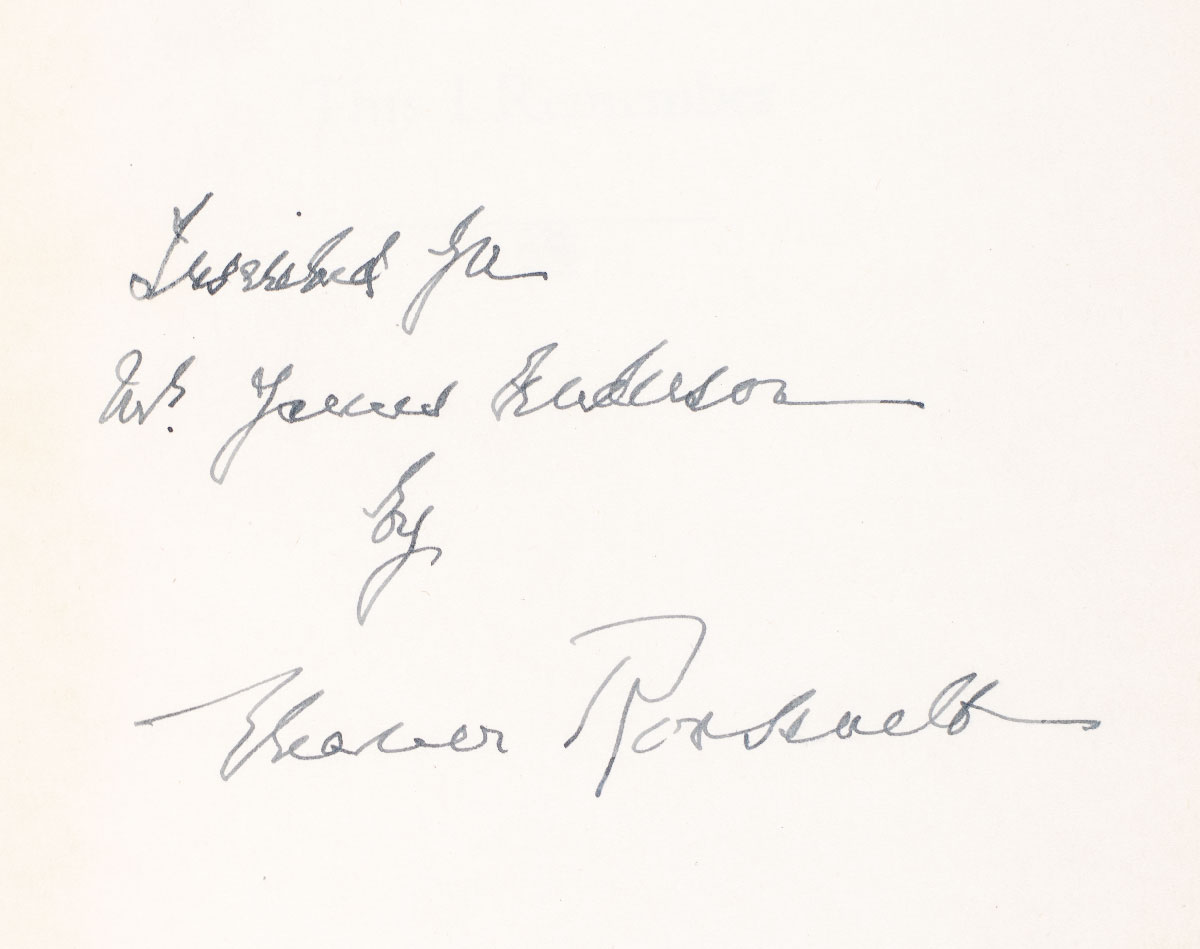 This I Remember
Inscribed to
Mr. James Anderson
by
Eleanor Roosevelt